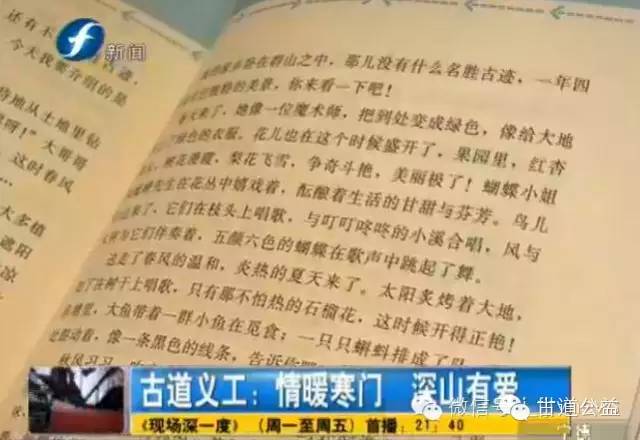 新闻
还有不
古迹，
今天我要介绍的是
待地从土地里钻
呀！”大哥哥
这时春风
大多植
遮阳
凉
家乡卧在群山之中，那儿没有什么名胜古迹，一年四
独特的美景，你来看一下吧！
天来了，她像一位魔术师，把到处变成绿色，像给大地
绿色的衣服。花儿也在这个时候盛开了，果园里，红杏
桃花漫霞，梨花飞雪，争奇斗艳，美丽极了！蝴蝶小姐
蜂先生在花丛中嬉戏着，酝酿着生活的甘甜与芬芳。鸟儿
来了，它们在枝头上唱歌，与叮叮咚咚的小溪合唱，风与
为它们伴奏着，五颜六色的蝴蝶在歌声中跳起了舞。
送走了春风的温和，炎热的夏天来了。太阳炙烤着大地，
了在树干上唱歌，只有那不怕热的石榴花，这时候开得正艳！
塘里，大鱼带着一群小鱼在觅食；一只只蝌蚪排成了队
动着，像一条黑色的线条，告诉你
秋风习习
古道义工：情暖寒门 深山有爱
《现场深一度》（周一至周五）首播：21：40
微信号：
世道公益